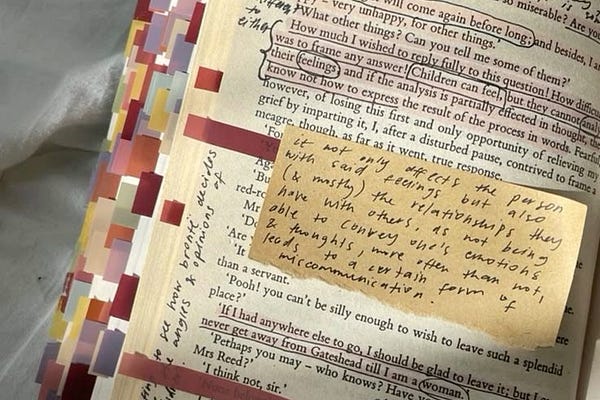 to
either
'Are
will come again before long; and besides, I a
py – very unhappy, for other things.'
'What other things? Can you tell me some of them?'
How much I wished to reply fully to this question! How difficul
was to frame any answer! Children can feel, but they cannot
their feelings; and if the analysis is partially effected in thought, th
know not how to express the result of the process in words. Fearful
however, of losing this first and only opportunity of relieving my
grief by imparting it, I, after a disturbed pause, contrived to frame a
meagre, though, as far as it went, true response.
it not only affects the person
with said feelings but also
(& mostly) the relationships they
have with others, as not being
able to convey one's emotions
& thoughts, more often than not,
leads to a certain form of
miscommunication.
red-ro
'Are y
than a servant.
'Pooh! you can't be silly enough to wish to leave such a splendid
place?'
'If I had anywhere else to go, I should be glad to leave it; but I
never get away from Gateshead till I am a woman.'
'Perhaps you may – who knows? Have
Mrs Reed?'
'I think not, sir.'
to see how brontë decides
angles & opinions of